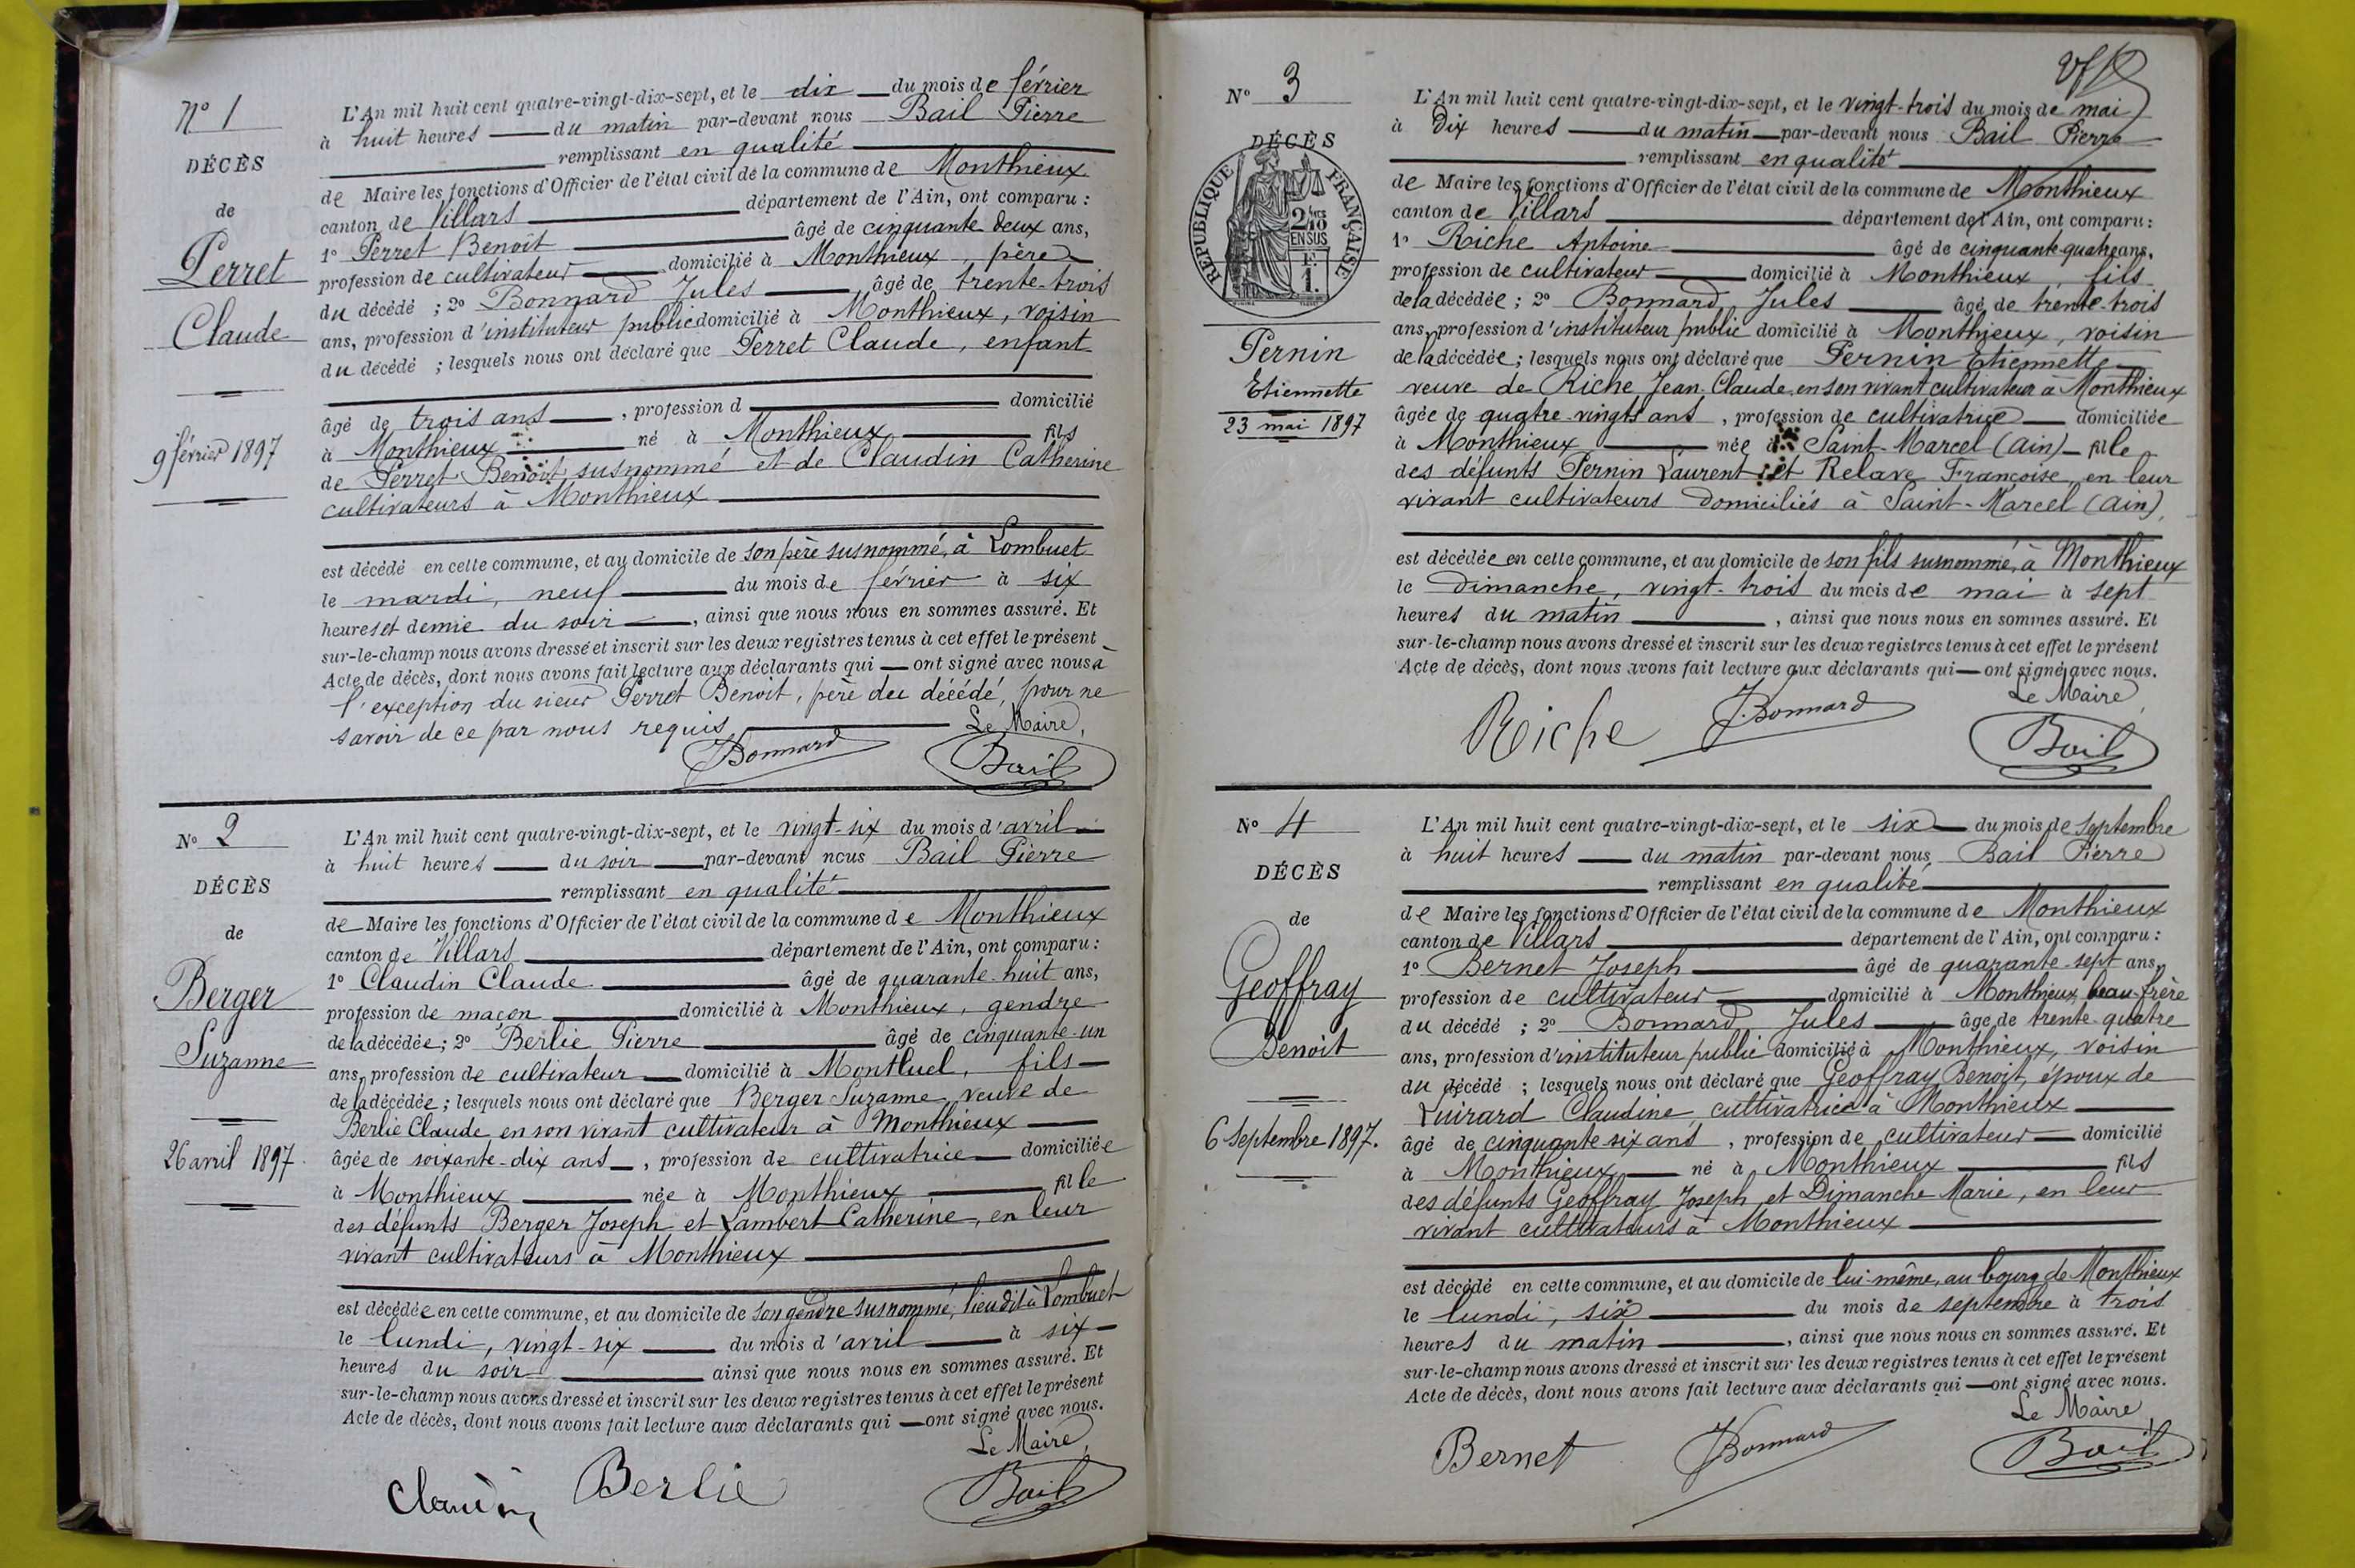 N° 1
DÉCÈS
de
Perret
Claude
9 février 1897
L'An mil huit cent quatre-vingt-dix-sept, et le dix du mois de février
à huit heures du matin par-devant nous Bail Pierre
remplissant en qualité
de Maire les fonctions d'Officier de l'état civil de la commune de Monthieux
canton de Villars département de l'Ain, ont comparu :
1° Perret Benoît âgé de cinquante deux ans,
profession de cultivateur domicilié à Monthieux, père
du décédé ; 2° Bonnard Jules âgé de trente-trois
ans, profession d'instituteur public domicilié à Monthieux, voisin
du décédé ; lesquels nous ont déclaré que Perret Claude, enfant
âgé de trois ans, profession d domicilié
à Monthieux né à Monthieux fils
de Perret Benoît susnommé et de Claudin Catherine
cultivateurs à Monthieux
est décédé en cette commune, et au domicile de son père susnommé, à Lombuet
le mardi, neuf du mois de février à six
heures et demie du soir, ainsi que nous nous en sommes assuré. Et
sur-le-champ nous avons dressé et inscrit sur les deux registres tenus à cet effet le présent
Acte de décès, dont nous avons fait lecture aux déclarants qui ont signé avec nous à
l'exception du sieur Perret Benoît, père du décédé, pour ne
savoir de ce par nous requis
Le Maire,
JBonnard Bail
N° 2
DÉCÈS
de
Berger
Suzanne
26 avril 1897.
L'An mil huit cent quatre-vingt-dix-sept, et le vingt-six du mois d'avril
à huit heures du soir par-devant nous Bail Pierre
remplissant en qualité
de Maire les fonctions d'Officier de l'état civil de la commune de Monthieux
canton de Villars département de l'Ain, ont comparu :
1° Claudin Claude âgé de quarante-huit ans,
profession de maçon domicilié à Monthieux, gendre
de la décédée ; 2° Berlie Pierre âgé de cinquante-un
ans, profession de cultivateur domicilié à Montluel, fils
de la décédée ; lesquels nous ont déclaré que Berger Suzanne, veuve de
Berlie Claude en son vivant cultivateur à Monthieux
âgée de soixante-dix ans, profession de cultivatrice domiciliée
à Monthieux née à Monthieux fille
des défunts Berger Joseph et Lambert Catherine, en leur
vivant cultivateurs à Monthieux
est décédée en cette commune, et au domicile de son gendre susnommé, lieu dit à Lombuet
le lundi, vingt-six du mois d'avril à six
heures du soir ainsi que nous nous en sommes assuré. Et
sur-le-champ nous avons dressé et inscrit sur les deux registres tenus à cet effet le présent
Acte de décès, dont nous avons fait lecture aux déclarants qui ont signé avec nous.
Le Maire,
Claudin Berlie Bail
N° 3
DÉCÈS
RÉPUBLIQUE FRANÇAISE
2/10
EN SUS
1 F.
Pernin
Etiennette
23 mai 1897
L'An mil huit cent quatre-vingt-dix-sept, et le vingt-trois du mois de mai
à Dix heures du matin par-devant nous Bail Pierre
remplissant en qualité
de Maire les fonctions d'Officier de l'état civil de la commune de Monthieux
canton de Villars département de l'Ain, ont comparu :
1° Riche Antoine âgé de cinquante quatre ans,
profession de cultivateur domicilié à Monthieux, fils
de la décédée ; 2° Bonnard Jules âgé de trente-trois
ans, profession d'instituteur public domicilié à Monthieux, voisin
de la décédée ; lesquels nous ont déclaré que Pernin Etiennette
veuve de Riche Jean-Claude, en son vivant cultivateur à Monthieux
âgée de quatre-vingts ans, profession de cultivatrice domiciliée
à Monthieux née à Saint-Marcel (Ain) fille
des défunts Pernin Laurent et Relave Françoise, en leur
vivant cultivateurs domiciliés à Saint-Marcel (Ain),
est décédée en cette commune, et au domicile de son fils susnommé, à Monthieux
le Dimanche, vingt-trois du mois de mai à sept
heures du matin, ainsi que nous nous en sommes assuré. Et
sur-le-champ nous avons dressé et inscrit sur les deux registres tenus à cet effet le présent
Acte de décès, dont nous avons fait lecture aux déclarants qui ont signé avec nous.
Le Maire,
Riche J.Bonnard Bail
N° 4
DÉCÈS
de
Geoffray
Benoît
6 Septembre 1897.
L'An mil huit cent quatre-vingt-dix-sept, et le six du mois de septembre
à huit heures du matin par-devant nous Bail Pierre
remplissant en qualité
de Maire les fonctions d'Officier de l'état civil de la commune de Monthieux
canton de Villars département de l'Ain, ont comparu :
1° Bernet Joseph âgé de quarante-sept ans,
profession de cultivateur domicilié à Monthieux, beau-frère
du décédé ; 2° Bonnard Jules âge de trente-quatre
ans, profession d'instituteur public domicilié à Monthieux, voisin
du décédé ; lesquels nous ont déclaré que Geoffray Benoît, époux de
Luirard Claudine, cultivatrice à Monthieux
âgé de cinquante-six ans, profession de cultivateur domicilié
à Monthieux né à Monthieux fils
des défunts Geoffray Joseph et Dimanche Marie, en leur
vivant cultivateurs à Monthieux
est décédé en cette commune, et au domicile de lui-même, au bourg de Monthieux
le lundi, six du mois de septembre à trois
heures du matin, ainsi que nous nous en sommes assuré. Et
sur-le-champ nous avons dressé et inscrit sur les deux registres tenus à cet effet le présent
Acte de décès, dont nous avons fait lecture aux déclarants qui ont signé avec nous.
Le Maire
Bernet JBonnard Bail